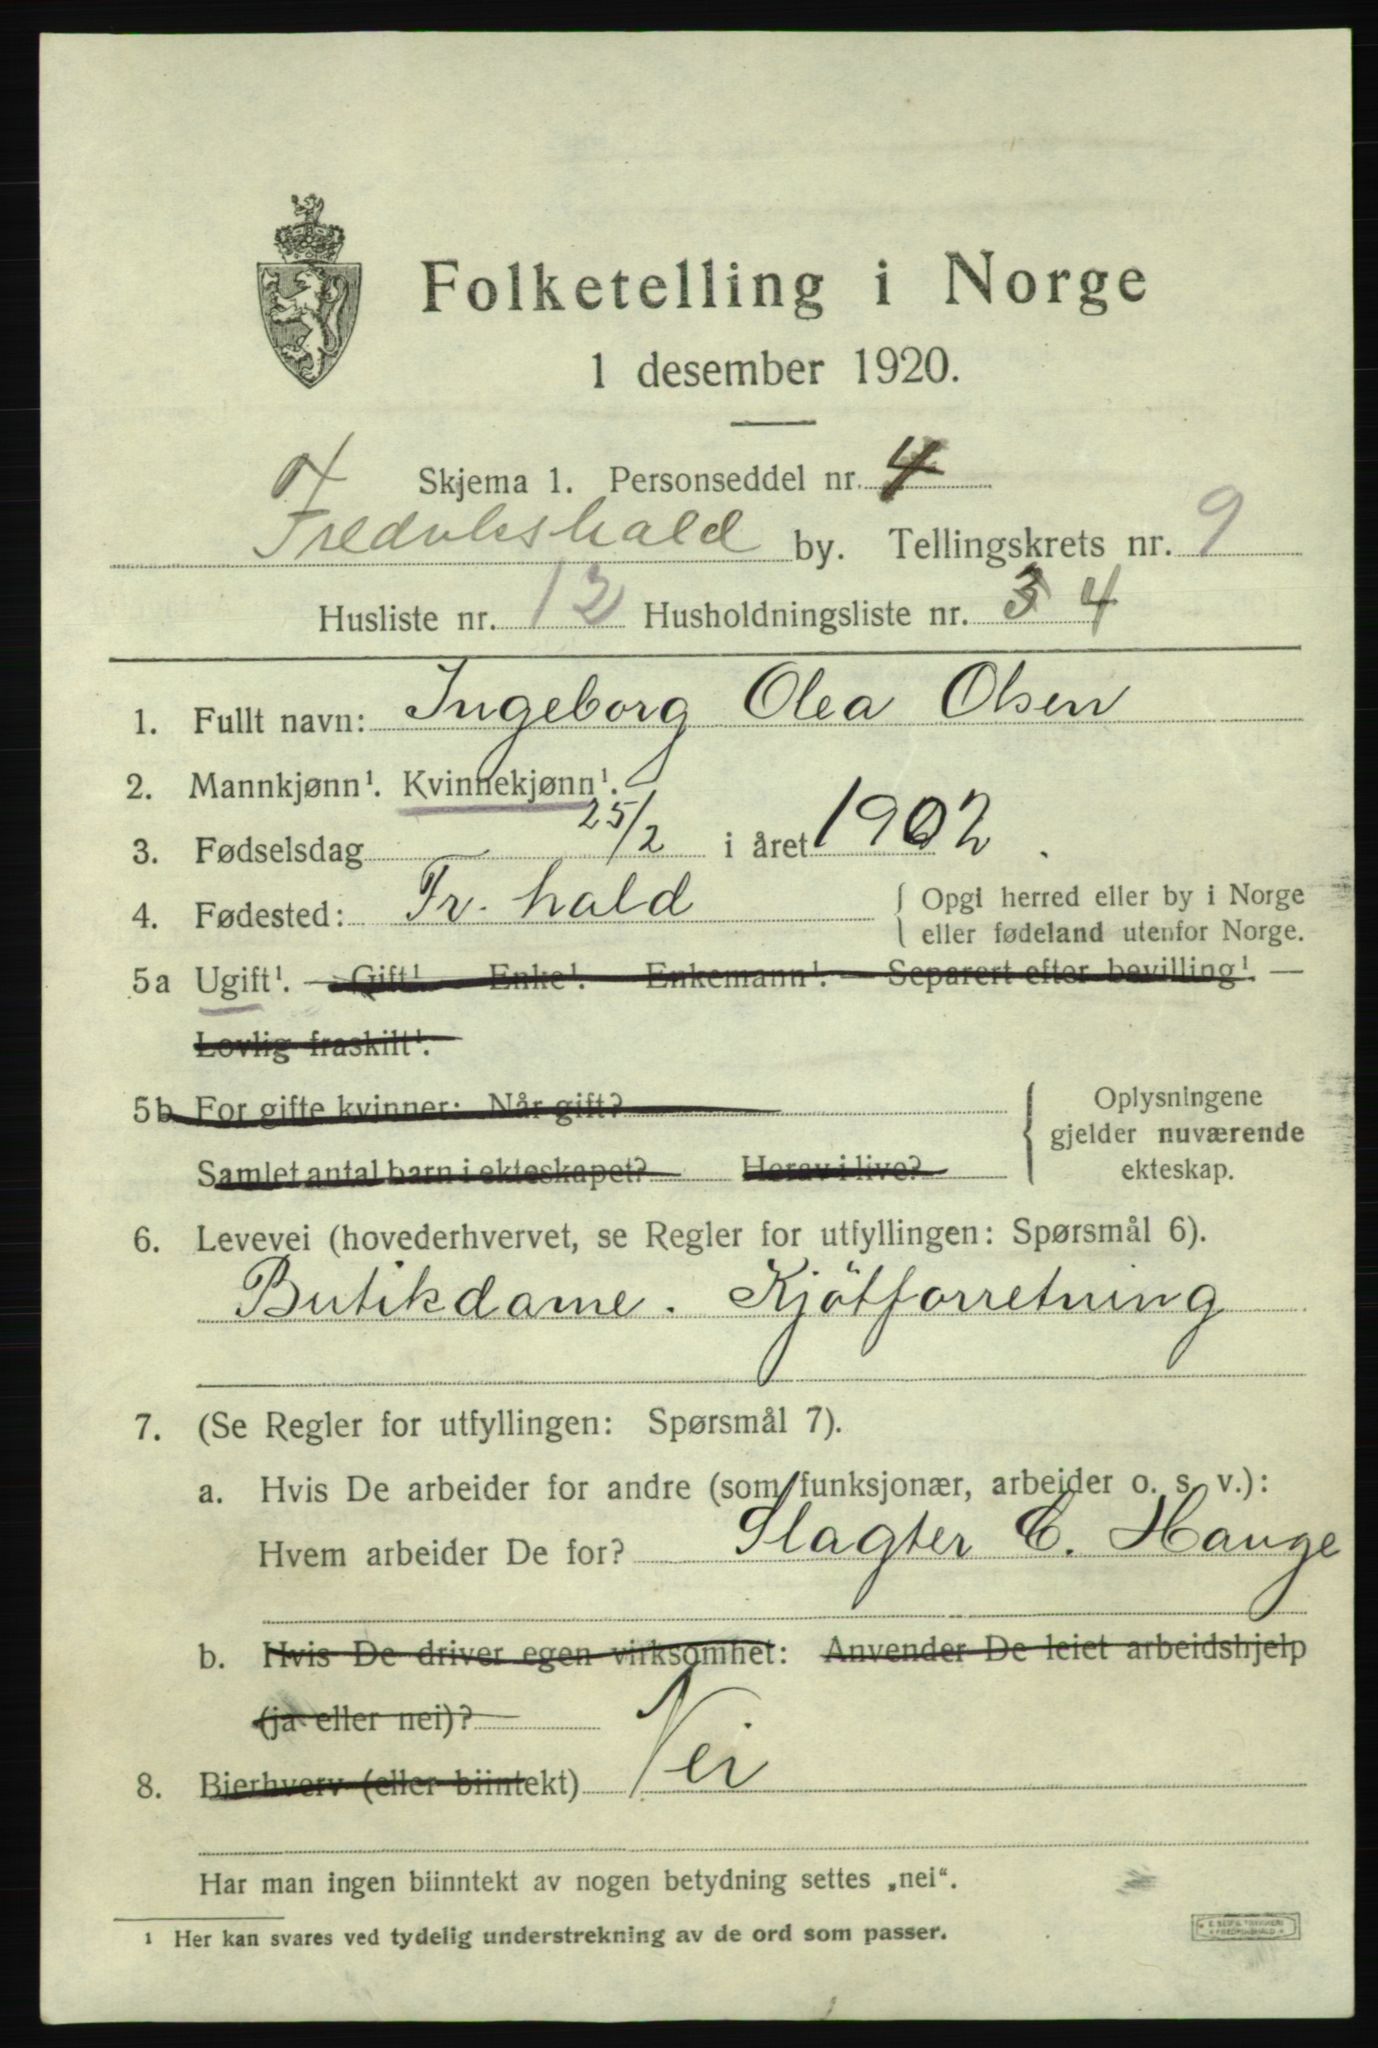 Folketelling i Norge
1 desember 1920.
Skjema 1. Personseddel nr. 4
Fredrikshald by. Tellingskrets nr. 9
Husliste nr. 12 Husholdningsliste nr. 3 4
1. Fullt navn: Ingeborg Olea Olsen
2. Mannkjønn¹. Kvinnekjønn¹.
3. Fødselsdag 25/2 i året 1902.
4. Fødested: Fr.hald { Opgi herred eller by i Norge
eller fødeland utenfor Norge.
5a Ugift¹. — Gift¹. Enke¹. Enkemann¹. — Separert efter bevilling¹. —
Lovlig fraskilt¹.
5b For gifte kvinner: Når gift?
Samlet antal barn i ekteskapet? Herav i live?
{ Oplysningene
gjelder nuværende
ekteskap.
6. Levevei (hovederhvervet, se Regler for utfyllingen: Spørsmål 6).
Butikdame. Kjötforretning
7. (Se Regler for utfyllingen: Spørsmål 7).
a. Hvis De arbeider for andre (som funksjonær, arbeider o. s. v.):
Hvem arbeider De for? Slagter C. Hauge
b. Hvis De driver egen virksomhet: Anvender De leiet arbeidshjelp
(ja eller nei)?
8. Bierhverv (eller biintekt) Nei
Har man ingen biinntekt av nogen betydning settes „nei“.
1 Her kan svares ved tydelig understrekning av de ord som passer.